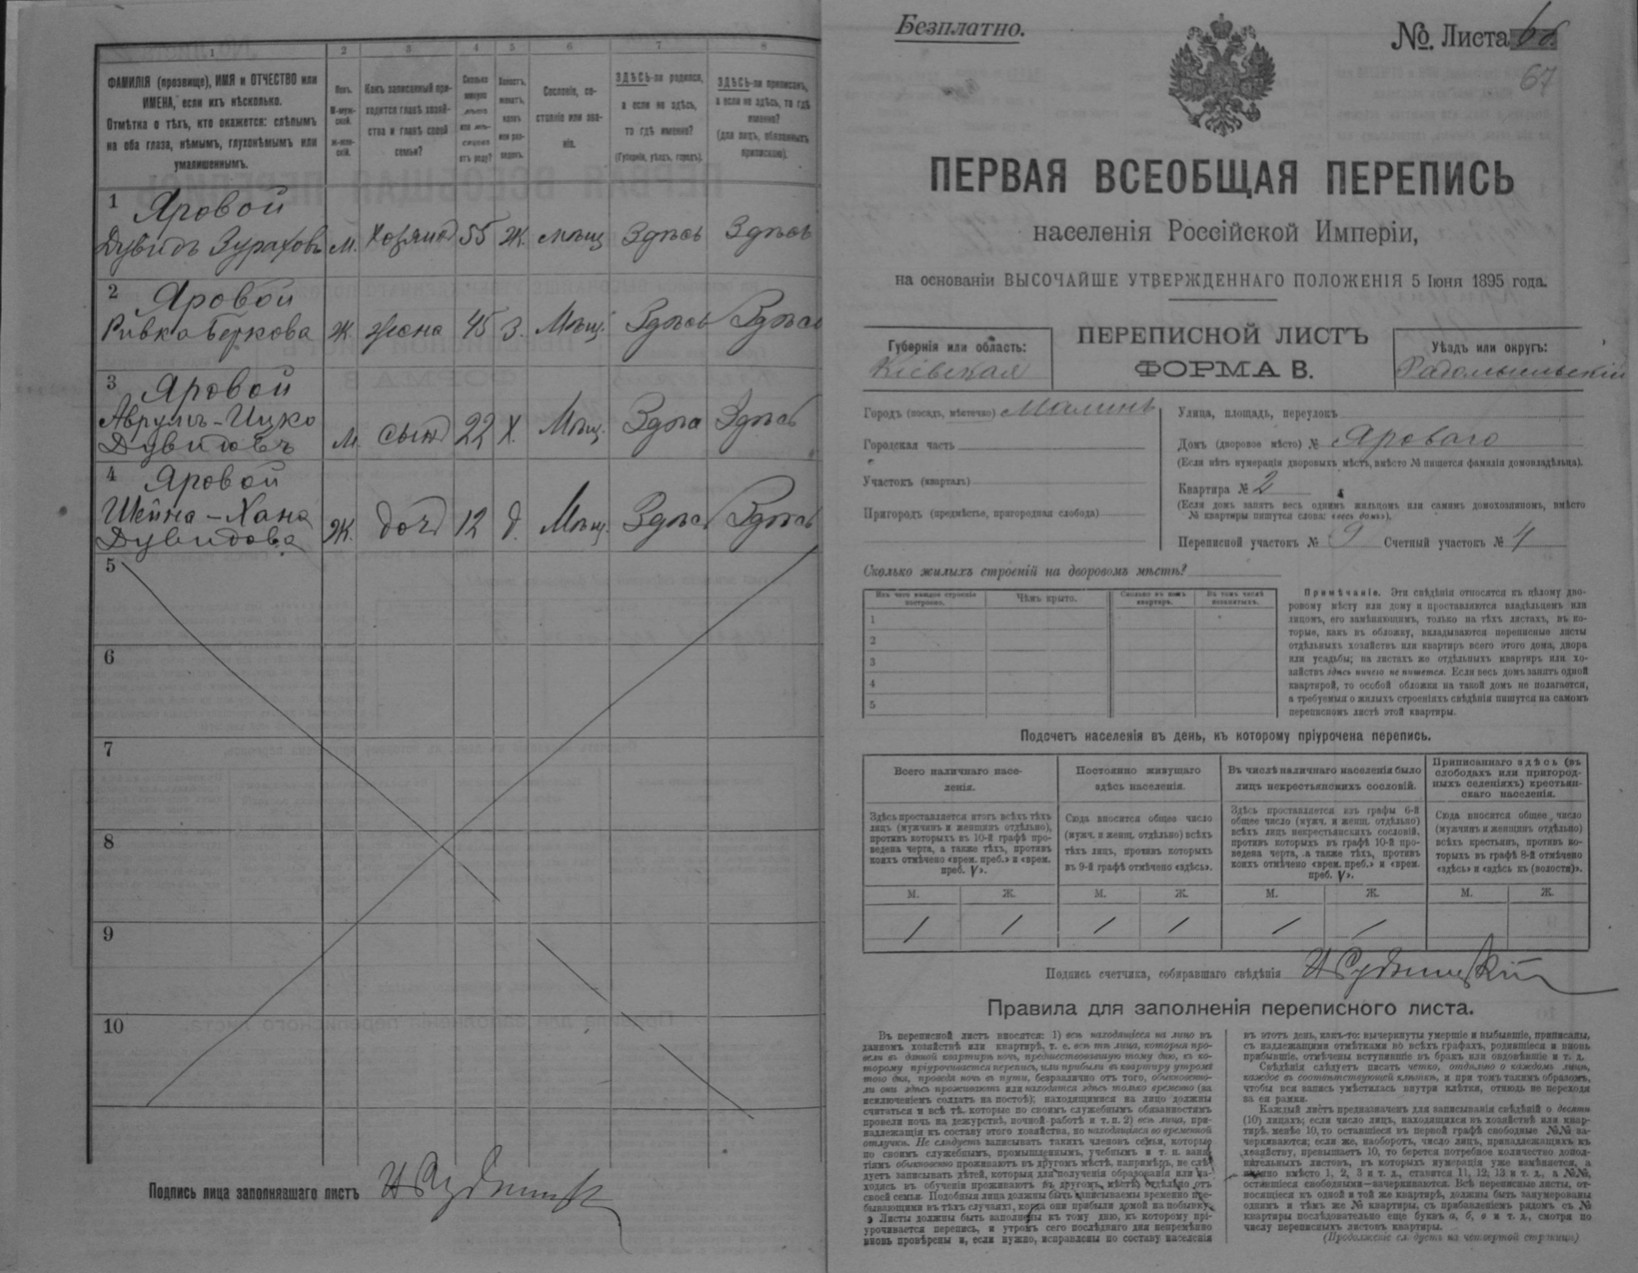 1
2
3
4
5
6
7
8
ФАМИЛІЯ (прозвище), ИМЯ и ОТЧЕСТВО или
ИМЕНА, если ихъ нѣсколько.
Отмѣтка о тѣхъ, кто окажется: слѣпымъ
на оба глаза, нѣмымъ, глухонѣмымъ или
умалишеннымъ.
Полъ.
Какъ записанный при-
ходится главѣ хозяй-
ства и главѣ своей
семьи?
Сколько
минуло
лѣтъ
или мѣ-
сяцевъ
отъ роду?
Холостъ,
женатъ,
вдовъ
или раз-
веденъ.
Сословіе, со-
стояніе или зва-
ніе.
ЗДѢСЬ-ли родился,
а если не здѣсь,
то гдѣ именно?
(Губернія, уѣздъ, городъ).
ЗДѢСЬ-ли приписанъ,
а если не здѣсь, то гдѣ
именно?
(для лицъ, обязанныхъ
припискою).
1 Яровой
Дувидъ Зураховъ м. Хозяинъ 55 Ж. мѣщ Здѣсь Здѣсь
2 Яровой
Ривка Беркова Ж. жена 45 З. Мѣщ. Здѣсь Здѣсь
3 Яровой
Аврумъ-Ицко
Дувидовъ м. сынъ 22 Х. Мѣщ. Здѣсь Здѣсь
4 Яровой
Шейна-Хана
Дувидова Ж. дочь 12 д. Мѣщ. Здѣсь Здѣсь
5
6
7
8
9
10
Подпись лица заполнявшаго листъ
Безплатно.
№ Листа
67
ПЕРВАЯ ВСЕОБЩАЯ ПЕРЕПИСЬ
населенія Россійской Имперіи,
на основаніи ВЫСОЧАЙШЕ УТВЕРЖДЕННАГО ПОЛОЖЕНІЯ 5 Іюня 1895 года.
Губернія или область:
Кіевская
ПЕРЕПИСНОЙ ЛИСТЪ
ФОРМА В.
Уѣздъ или округъ:
Радомысльскій
Городъ (посадъ, мѣстечко) Малинъ
Городская часть
Участокъ (кварталъ)
Пригородъ (предмѣстье, пригородная слобода)
Улица, площадь, переулокъ
Домъ (дворовое мѣсто) № Яроваго
(Если нѣтъ нумераціи дворовыхъ мѣстъ, вмѣсто № пишется фамилія домовладѣльца).
Квартира № 2
(Если домъ занятъ весь однимъ жильцомъ или самимъ домохозяиномъ, вмѣсто
№ квартиры пишутся слова: «весь домъ»).
Переписной участокъ № 9 Счетный участокъ № 4
Сколько жилыхъ строеній на дворовомъ мѣстѣ?
Изъ чего каждое строеніе
построено.
Чѣмъ крыто.
Сколько въ немъ
квартиръ.
Въ томъ числѣ
незанятыхъ.
1
2
3
4
5
Примѣчаніе. Эти свѣдѣнія относятся къ цѣлому дво-
ровому мѣсту или дому и проставляются владѣльцемъ или
лицомъ, его замѣняющимъ, только на тѣхъ листахъ, въ ко-
торые, какъ въ обложку, вкладываются переписные листы
отдѣльныхъ хозяйствъ или квартиръ всего этого дома, двора
или усадьбы; на листахъ же отдѣльныхъ квартиръ или хо-
зяйствъ здѣсь ничего не пишется. Если весь домъ занятъ одной
квартирой, то особой обложки на такой домъ не полагается,
а требуемыя о жилыхъ строеніяхъ свѣдѣнія пишутся на самомъ
переписномъ листѣ этой квартиры.
Подсчетъ населенія въ день, къ которому пріурочена перепись.
Всего наличнаго насе-
ленія.
Здѣсь проставляется итогъ всѣхъ тѣхъ
лицъ (мужчинъ и женщинъ отдѣльно),
противъ которыхъ въ 10-й графѣ про-
ведена черта, а также тѣхъ, противъ
коихъ отмѣчено «врем. преб.» и «врем.
преб. V».
Постоянно живущаго
здѣсь населенія.
Сюда вносится общее число
(мужч. и женщ. отдѣльно) всѣхъ
тѣхъ лицъ, противъ которыхъ
въ 9-й графѣ отмѣчено «здѣсь».
Въ числѣ наличнаго населенія было
лицъ некрестьянскихъ сословій.
Здѣсь проставляется изъ графы 6-й
общее число (мужч. и женщ. отдѣльно)
всѣхъ лицъ некрестьянскихъ сословій,
противъ которыхъ въ графѣ 10-й про-
ведена черта, а также тѣхъ, противъ
коихъ отмѣчено «врем. преб.» и «врем.
преб. V».
Приписаннаго здѣсь (въ
слободахъ или пригород-
ныхъ селеніяхъ) крестьян-
скаго населенія.
Сюда вносится общее число
(мужчинъ и женщинъ отдѣльно)
всѣхъ крестьянъ, противъ ко-
торыхъ въ графѣ 8-й отмѣчено
«здѣсь» и «здѣсь къ (волости)».
М. Ж. М. Ж. М. Ж. М. Ж.
/ / / / / /
Подпись счетчика, собиравшаго свѣдѣнія
Правила для заполненія переписного листа.
Въ переписной листъ вносятся: 1) всѣ находящіеся на лицо въ
данномъ хозяйствѣ или квартирѣ, т. е. всѣ тѣ лица, которыя про-
вели въ данной квартирѣ ночь, предшествовавшую тому дню, къ ко-
торому пріурочивается перепись, или прибыли въ квартиру утромъ
того дня, проведя ночь въ пути, безразлично отъ того, обыкновенно-
ли они здѣсь проживаютъ или находятся здѣсь только временно (за
исключеніемъ солдатъ на постоѣ); находящимися на лицо должны
считаться и всѣ тѣ, которые по своимъ служебнымъ обязанностямъ
провели ночь на дежурствѣ, ночной работѣ и т. п. 2) всѣ лица, при-
надлежащія къ составу этого хозяйства, но находящіяся во временной
отлучкѣ. Не слѣдуетъ записывать такихъ членовъ семьи, которые
по своимъ служебнымъ, промышленнымъ, учебнымъ и т. п. заня-
тіямъ обыкновенно проживаютъ въ другомъ мѣстѣ, напримѣръ, не слѣ-
дуетъ записывать дѣтей, которыя для полученія образованія или на-
ходясь въ обученіи проживаютъ въ другомъ мѣстѣ отдѣльно отъ
своей семьи. Подобныя лица должны быть записываемы временно пре-
бывающими въ тѣхъ случаяхъ, когда они прибыли домой на побывку.
Листы должны быть заполнены къ тому дню, къ которому прі-
урочивается перепись, и утромъ сего послѣдняго дня непремѣнно
вновь провѣрены и, если нужно, исправлены по составу населенія
въ этотъ день, какъ-то: вычеркнуты умершіе и выбывшіе, приписаны,
съ надлежащими отмѣтками во всѣхъ графахъ, родившіеся и вновь
прибывшіе, отмѣчены вступившіе въ бракъ или овдовѣвшіе и т. д.
Свѣдѣнія слѣдуетъ писать четко, отдѣльно о каждомъ лицѣ,
каждое въ соотвѣтствующей клѣткѣ, и при томъ такимъ образомъ,
чтобы вся запись умѣстилась внутри клѣтки, отнюдь не переходя
за ея рамки.
Каждый листъ предназначенъ для записыванія свѣдѣній о десяти
(10) лицахъ; если число лицъ, находящихся въ хозяйствѣ или квар-
тирѣ, менѣе 10, то оставшіеся въ первой графѣ свободные №№ за-
черкиваются; если же, наоборотъ, число лицъ, принадлежащихъ къ
хозяйству, превышаетъ 10, то берется потребное количество допол-
нительныхъ листовъ, въ которыхъ нумерація уже измѣняется, а
именно вмѣсто 1, 2, 3 и т. д., ставится 11, 12, 13 и т. д., а №№,
оставшіеся свободными—зачеркиваются. Всѣ переписные листы, от-
носящіеся къ одной и той же квартирѣ, должны быть занумерованы
однимъ и тѣмъ же № квартиры, съ прибавленіемъ рядомъ съ №
квартиры послѣдовательно еще буквъ а, б, в и т. д., смотря по
числу переписныхъ листовъ квартиры.
(Продолженіе слѣдуетъ на четвертой страницѣ)